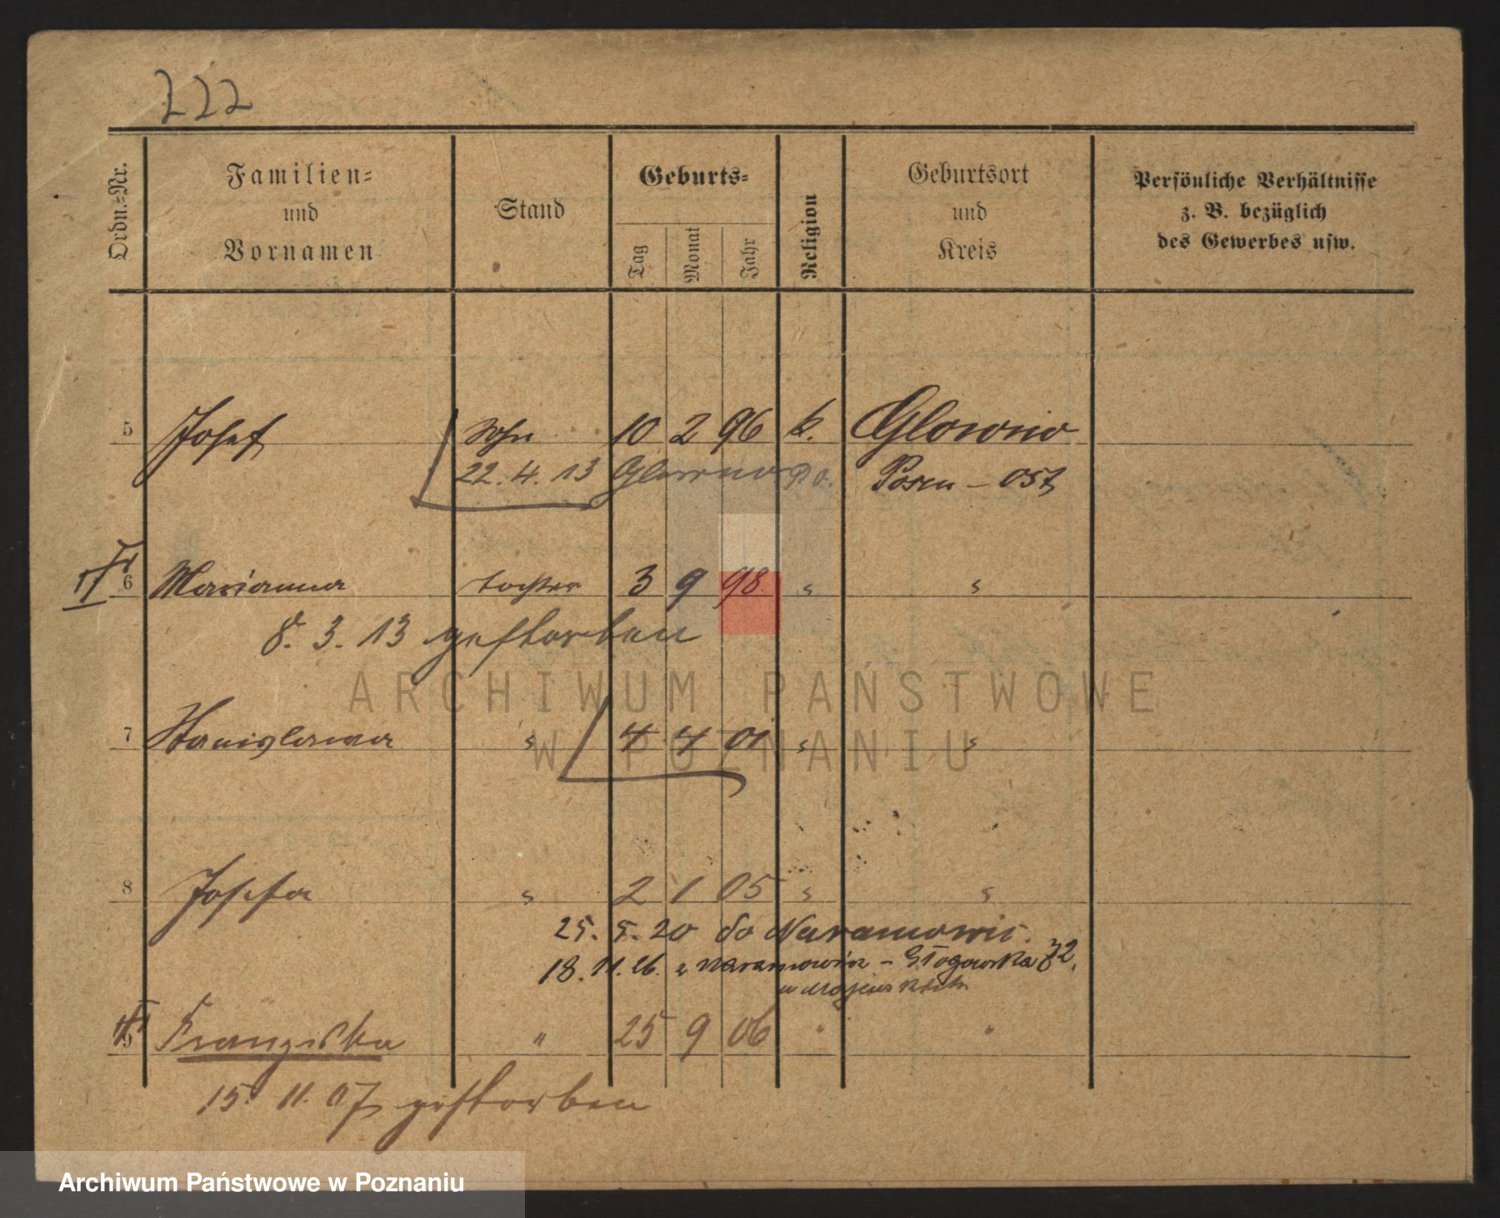 222
Ordn.-Nr.
Familien-
und
Vornamen
Stand
Geburts-
Tag
Monat
Jahr
Religion
Geburtsort
und
Kreis
Persönliche Verhältnisse
z. B. bezüglich
des Gewerbes usw.
5 Josef Sohn 10 2 96 k. Glowno
22. 4. 13 Glowno Posen - Ost
6 Marianna Tochter 3 9 98
8. 3. 13 gestorben
ARCHIWUM PAŃSTWOWE
W POZNANIU
7 Stanislawa 4 4 01
8 Josefa 2 1 05
25. 5. 20 do Naramowic.
18. 11. 26. z Naramowic - Głogowska 82.
9 Franziska " 25 9 06
15. 11. 07 gestorben
Archiwum Państwowe w Poznaniu